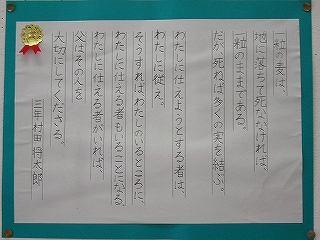 一粒の麦は、
地に落ちて死ななければ、
一粒のままである。
だが、死ねば多くの実を結ぶ。
わたしに仕えようとする者は、
わたしに従え。
そうすればわたしのいるところに、
わたしに仕える者もいることになる。
わたしに仕える者がいれば、
父はその人を
大切にしてくださる。
三年 村田 将太郎